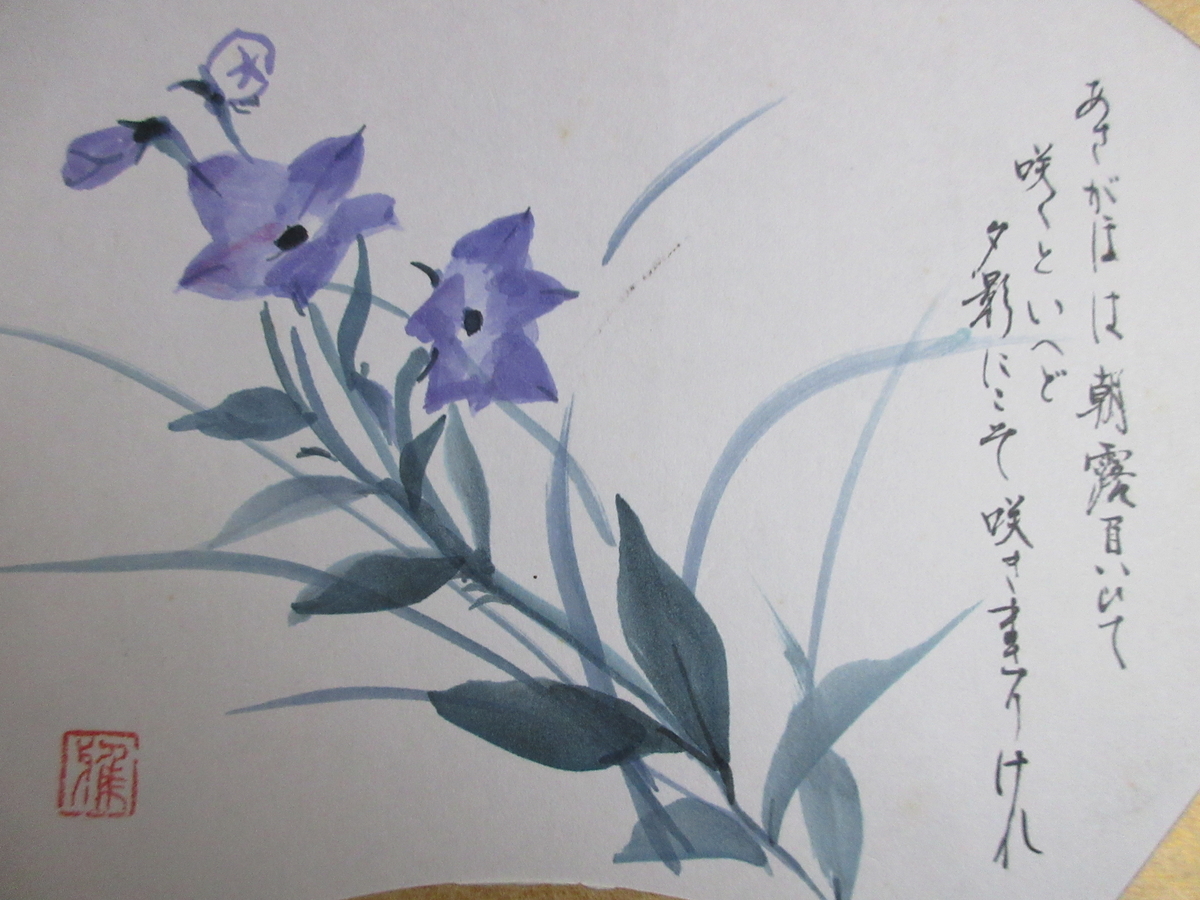 あさがほは朝露負いて
咲くといへど
夕影にこそ咲きまさりけれ
雅